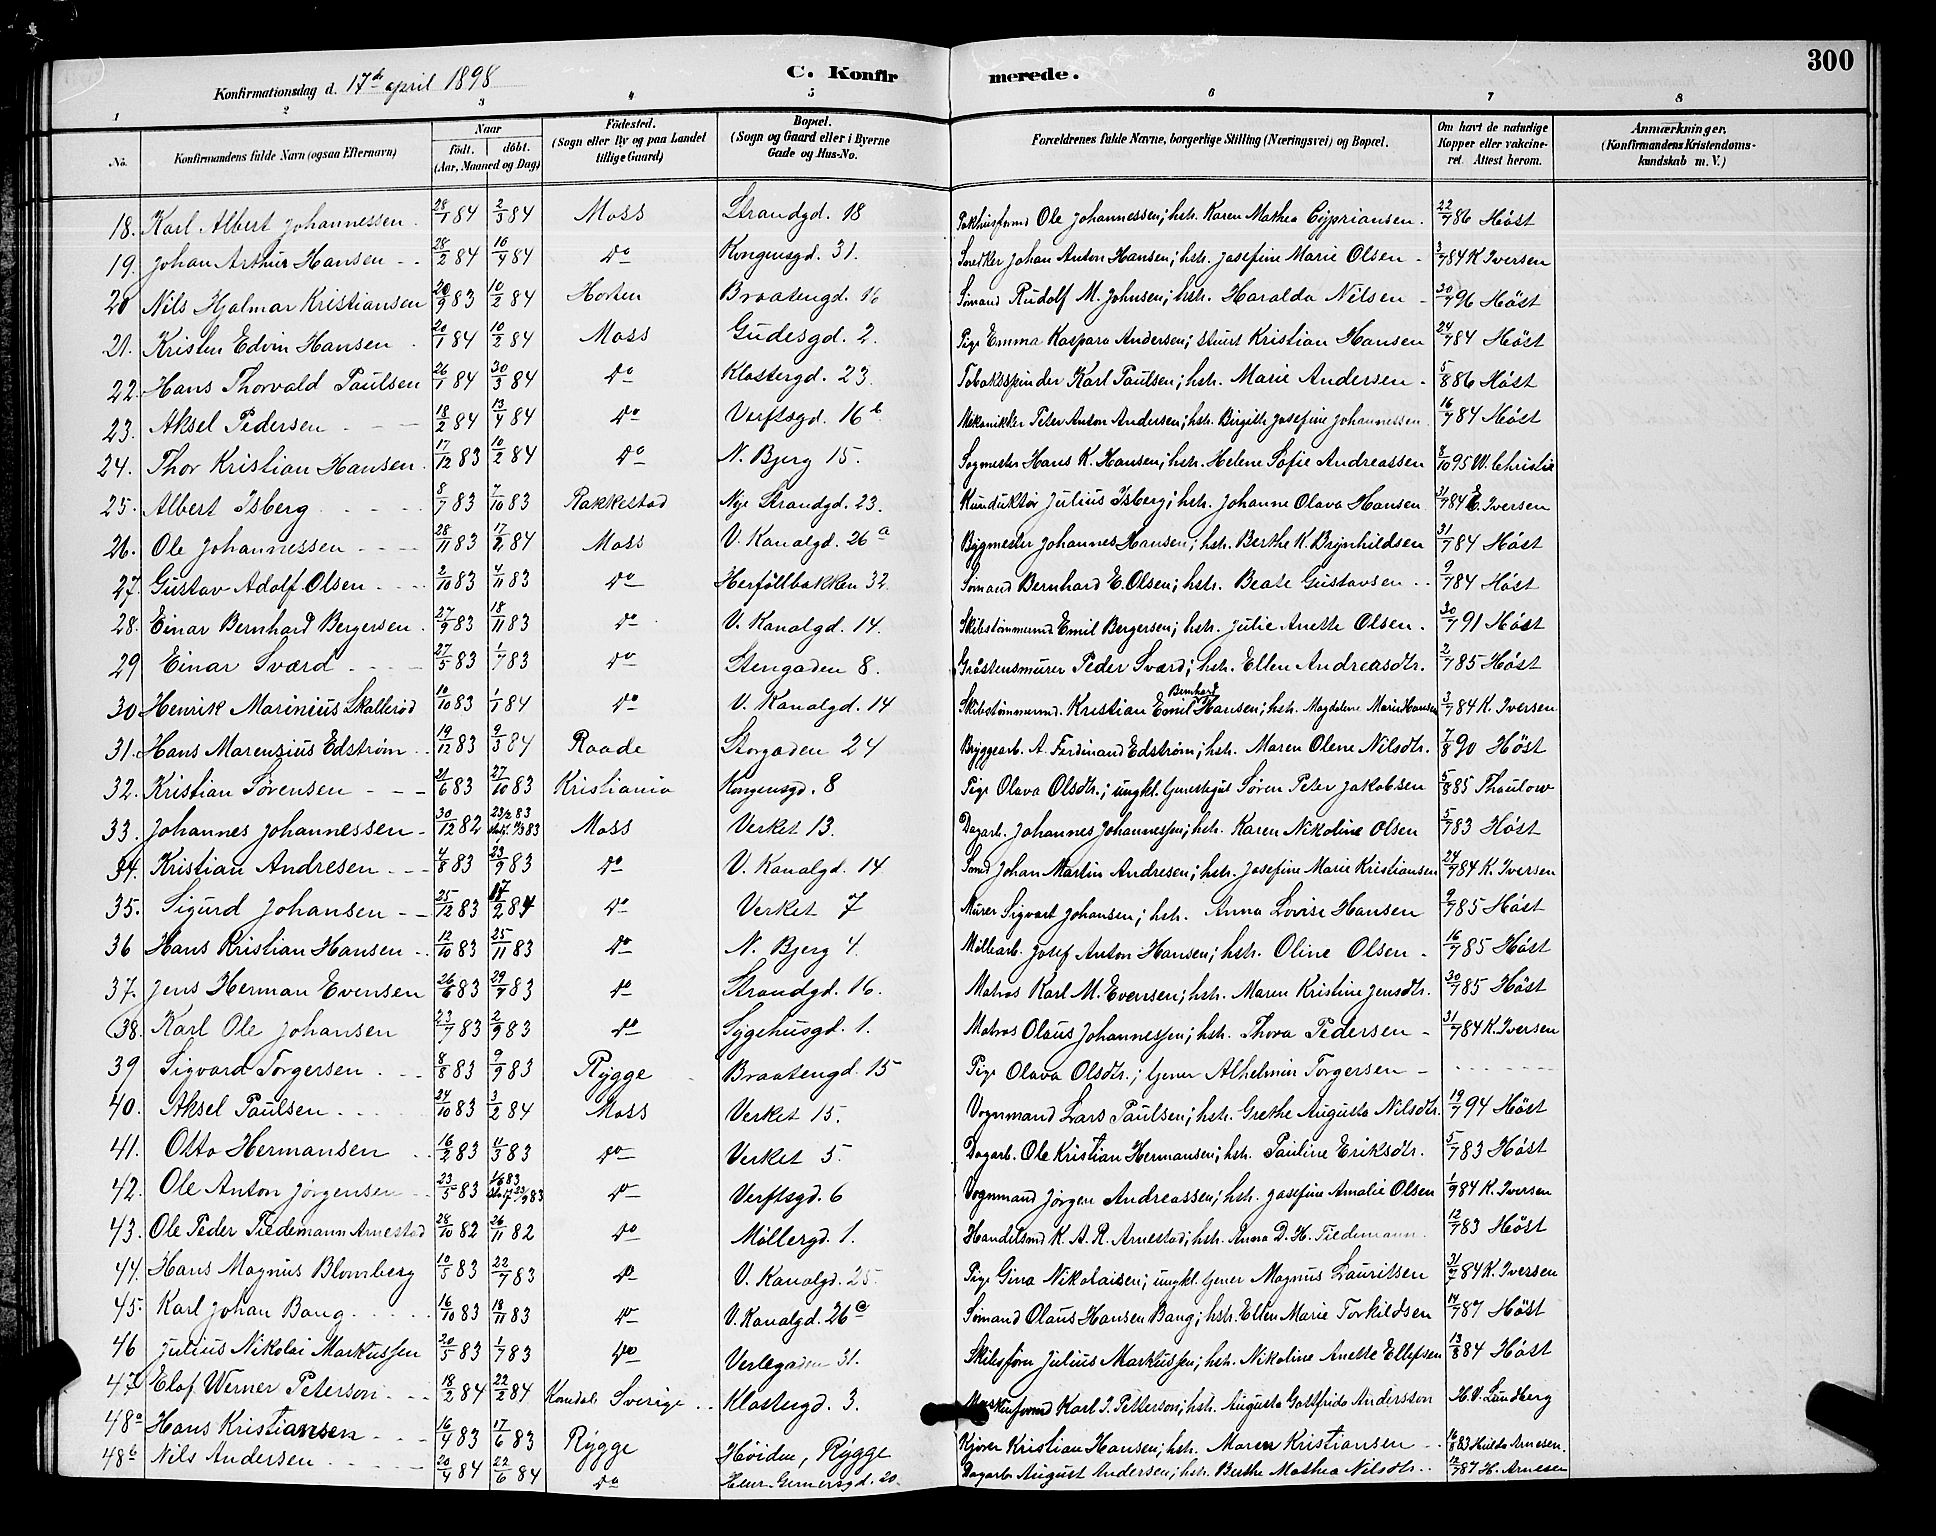 300
Konfirmationsdag d. 17de april 1898
C. Konfirmerede.
1 2 3 4 5 6 7 8
No. Konfirmandens fulde Navn (ogsaa Efternavn) Naar født. døbt. (Aar, Maaned og Dag) Fødested. (Sogn eller By og paa Landet tillige Gaard) Bopæl. (Sogn og Gaard eller i Byerne Gade og Hus-No. Forældrenes fulde Navne, borgerlige Stilling (Næringsvei) og Bopæl. Om havt de naturlige Kopper eller vakcineret. Attest herom. Anmærkninger. (Konfirmandens Kristendomskundskab m. V.)
18. Karl Albert Johannessen 28/1 84 2/3 84 Moss Strandgd. 18 Pakhusformd Ole Johannessen; hstr. Karen Mathea Cypriansen 22/7 86 Höst
19. Johan Arthur Hansen 28/2 84 10/4 84 Do Kongensgd. 31. Snedker Johan Anton Hansen; hstr. Josefine Marie Olsen 3/7 84 K Iversen
20 Nils Hjalmar Kristiansen 20/9 83 10/2 84 Horten Braatengd. 16 Sömand Rudolf M. Johnsen; hstr. Haralda Nilsen 30/7 96 Höst
21. Kristen Edvin Hansen 20/1 84 10/2 84 Moss Gudesgd. 2. Pige Emma Kaspara Andersen; stuert Kristian Hansen 24/7 84 Höst
22. Hans Thorvald Paulsen 26/1 84 30/3 84 Do Klostergd. 23. Tobaksspinder Karl Paulsen; hstr. Marie Andersen 5/8 86 Höst
23. Aksel Pedersen 18/2 84 13/4 84 Do Verftsgd. 16 b Mekanikker Peter Anton Andersen; hstr. Birgitte Josefine Johannessen 16/7 84 Höst
24. Thor Kristian Hansen 17/12 83 10/2 84 Do N. Bjerg 15. Sagmester Hans K. Hansen; hstr. Helene Sofie Andreassen 8/10 95 W. Christie
25. Albert Isberg 8/7 83 7/10 83 Rakkestad Nye Strandgd. 23. Kunduktör Julius Isberg; hstr. Johanne Olava Hansen 31/7 84 E. Iversen
26. Ole Johannessen 28/11 83 17/2 84 Moss V. Kanalgd. 26 a Bygmester Johannes Hansen; hstr. Berthe K. Brynhildsen 31/7 84 Höst
27. Gustav Adolf Olsen 2/10 83 4/11 83 Do Herföllbakken 32. Sömand Bernhard E. Olsen; hstr. Beate Gustavsen 9/7 84 Höst
28. Einar Bernhard Bergersen 27/9 83 18/11 83 Do V. Kanalgd. 14. Skibstömmermd Emil Bergersen; hstr. Julie Anette Olsen 30/7 91 Höst
29 Einar Sværd 27/5 83 1/7 83 Do Stengaden 8. Gråstensmurer Peder Sværd; hstr. Ellen Andreasdtr. 2/7 85 Höst
30 Henrik Marinius Skallerød 10/10 83 1/1 84 Do V. Kanalgd. 14 Skibstömmermd. Kristian Emil Bernhard Hansen; hstr. Magdalene Marie Hansen 3/7 84 K. Iversen
31. Hans Marenzius Edström 19/12 83 9/3 84 Raade Storgaden 24 Bryggearb. A. Ferdinand Edström; hstr. Maren Olene Nilsdtr. 7/8 90 Höst
32. Kristian Sörensen 21/6 83 27/10 83 Kristiania Kongensgd. 8 Pige Olava Olsdtr.; ungkl. tjenestegut Sören Peter Jakobsen 5/8 85 Thaulow
33. Johannes Johannessen 30/12 82 23/2 83 Moss Verket 13. Dagarb. Johannes Johannessen; hstr. Karen Nikoline Olsen 5/7 83 Höst
34. Kristian Andresen 4/8 83 23/9 83 Do V. Kanalgd. 14 Sömd Johan Martin Andresen; hstr. Josefine Marie Kristiansen 24/7 84 K. Iversen
35. Sigurd Johansen 25/12 83 17/2 84 Do Verket 7 Murer Sigvart Johansen; hstr. Anna Lovise Hansen 9/7 85 Höst
36 Hans Kristian Hansen 12/10 83 25/11 83 Do N. Bjerg 4. Möllearb. Josef Anton Hansen; hstr. Oline Olsen 16/7 85 Höst
37. Jens Herman Evensen 26/6 83 29/7 83 Do Strandgd. 16. Matros Karl M. Evensen; hstr. Maren Kristine Jensdtr. 30/7 85 Höst
38. Karl Ole Johansen 23/7 83 2/9 83 Do Sygehusgd. 1. Matros Olaus Johannessen; hstr. Thora Pedersen 31/7 84 K. Iversen
39 Sigvard Torgersen 8/8 83 9/9 83 Rygge Braatengd. 15 Pige Olava Olsdtr.; tjener Alhelmin Torgersen
40. Aksel Paulsen 24/10 83 3/2 84 Moss Verket 15. Vognmand Lars Paulsen; hstr. Grethe Augusta Nilsdtr. 19/7 94 Höst
41. Otto Hermansen 16/2 83 11/3 83 Do Verket 5. Dagarb. Ole Kristian Hermansen; hstr. Pauline Eriksdtr. 5/7 83 Höst
42. Ole Anton Jörgensen 23/5 83 1/6 83 Do Verftsgd. 6 Vognmand Jörgen Andreassen; hstr. Josefine Amalie Olsen 1/9 84 K. Iversen
43. Ole Peder Tiedemann Arnestad 28/10 82 26/11 82 Do Möllergd. 1. Handelsmd K. A. R. Arnestad; hstr. Anna D. H. Tiedemann 12/7 83 Höst
44. Hans Magnus Blomberg 10/5 83 22/7 83 Do V. Kanalgd. 25. Pige Gina Nikolaisen; ungkl. tjener Magnus Lauritsen 31/7 84 K. Iversen
45. Karl Johan Bang 16/10 83 18/11 83 Do V. Kanalgd. 26 c Sömand Olaus Hansen Bang; hstr. Ellen Marie Torkildsen 14/7 87 Höst
46 Julius Nikolai Markussen 20/5 83 1/7 83 Do Verlegaden 31. Skibsförer Julius Markussen; hstr. Nikoline Anette Ellefsen 13/8 84 Höst
47. Elof Werner Peterson 18/2 84 22/2 84 Sverige Klostergd. 3. Maskinformd Karl J. Petterson; hstr. Augusta Gottfrida Andersson H. V. Lundberg
48 a Hans Kristiansen 16/4 83 17/6 83 Rygge Höiden, Rygge Kjörer Kristian Hansen; hstr. Maren Kristiansen 16/8 83 Hulda Arnesen.
48 b Nils Andersen 20/4 84 22/6 84 Do Henr. Gernersgd. 20. Dagarb August Andersen; hstr. Berthe Mathea Nilsdtr. 12/7 87 H. Arnesen